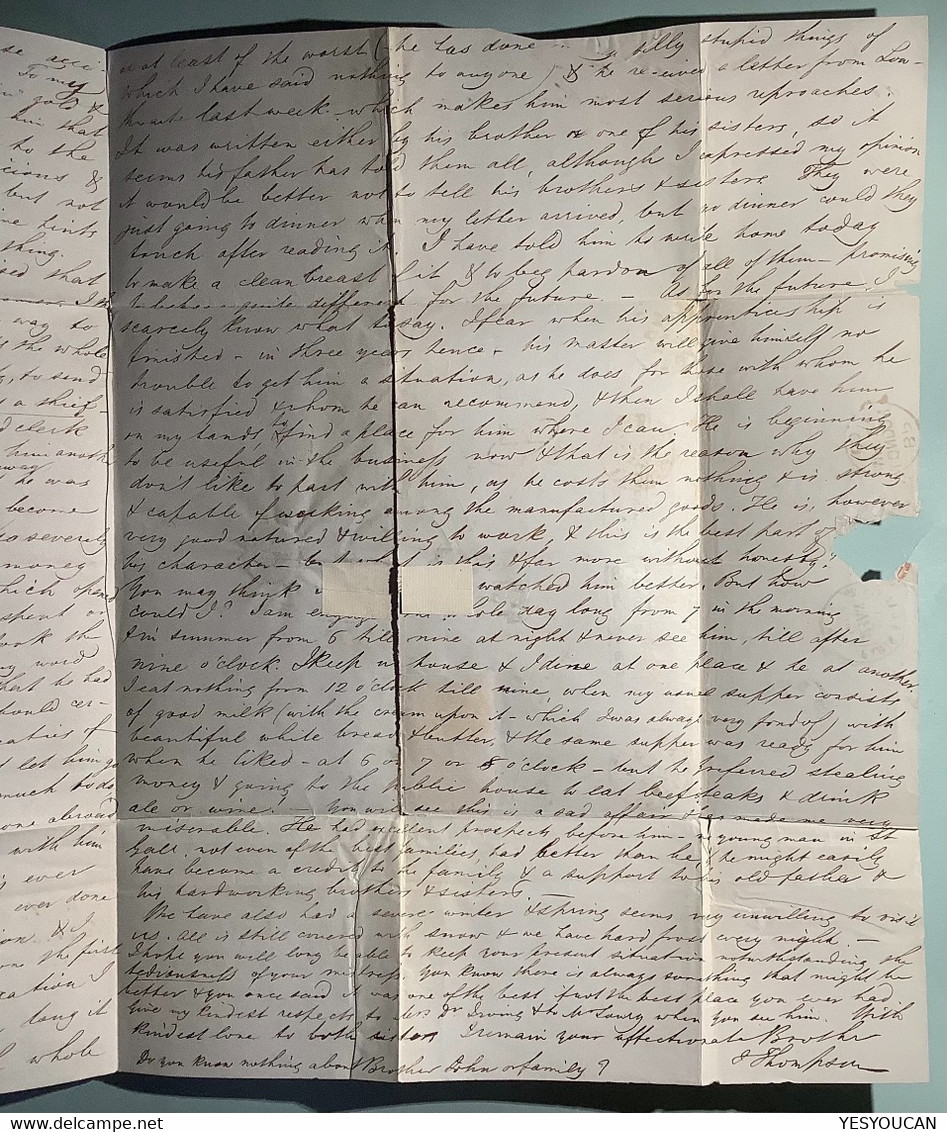 se acci-
To my
gold &
him that
to the
icious &
but not
hints
thing.
sed that
way to
the whole
to send
a thief-
clerk
him anoth
away
he was
become
so severely
money
which
spent or
took the
my word
that he had
should cer-
of
let him go
much to do
one abroad
with him
ever
ever done
& I
the first
I
long it
whole
not least of the worst (he has done silly stupid things of
which I have said nothing to anyone) & he received a letter from Low-
thwaite last week which makes him most serious reproaches.
It was written either by his brother or one of his sisters, so it
seems his father has told them all, although I expressed my opinion
it would be better not to tell his brothers & sisters They were
just going to dinner when my letter arrived, but no dinner could they
touch after reading it I have told him to write home today
to make a clean breast of it & to beg pardon of all of them – promising
to be quite different for the future – As for the future, I
scarcely know what to say. I fear when his apprenticeship is
finished – in three years hence – his master will give himself no
trouble to get him a situation, as he does for those with whom he
is satisfied & whom he can recommend, & then I shall have him
on my hands to find a place for him where I can He is beginning
to be useful in the business now & that is the reason why they
don't like to part with him, as he costs them nothing & is strong
& capable of working among the manufactured goods. He is, however
very good natured & willing to work, & this is the best part of
his character – but what is this & far more without honesty?
You may think watched him better. But how
could I? I am whole day long from 7 in the morning
& in summer from 6 till nine at night & never see him, till after
nine o'clock. I keep no house & I dine at one place & he at another
I eat nothing from 12 o'clock till nine when my usual supper consists
of good milk (with the cream upon it – which I was always very fond of) with
beautiful white bread & butter, & the same supper was ready for him
when he liked – at 6 or 7 or 8 o'clock – but he preferred stealing
money & going to the public house to eat beefsteaks & drink
ale or wine! – You will see this is a sad affair & has made me very
miserable. He had excellent prospects before him – no young man in St
Gall not even of the best families had better than he & he might easily
have become a credit to the family & a support to his old father &
his hardworking brothers & sisters –
We have also had a severe winter & spring seems very unwilling to visit
us. All is still covered with snow & we have hard frost every night. –
I hope you will long be able to keep your present situation notwithstanding the
tediousness of your You know there is always something that might be
better & you once said it was one of the best, if not the best place you ever had
Give my kindest respects to Mrs. Dr Irving & to Mr Lowry when you see him. With
kindest love to both sisters I remain your affectionate Brother
J Thompson
Do you know nothing about Brother John or family?
YESYOUCAN